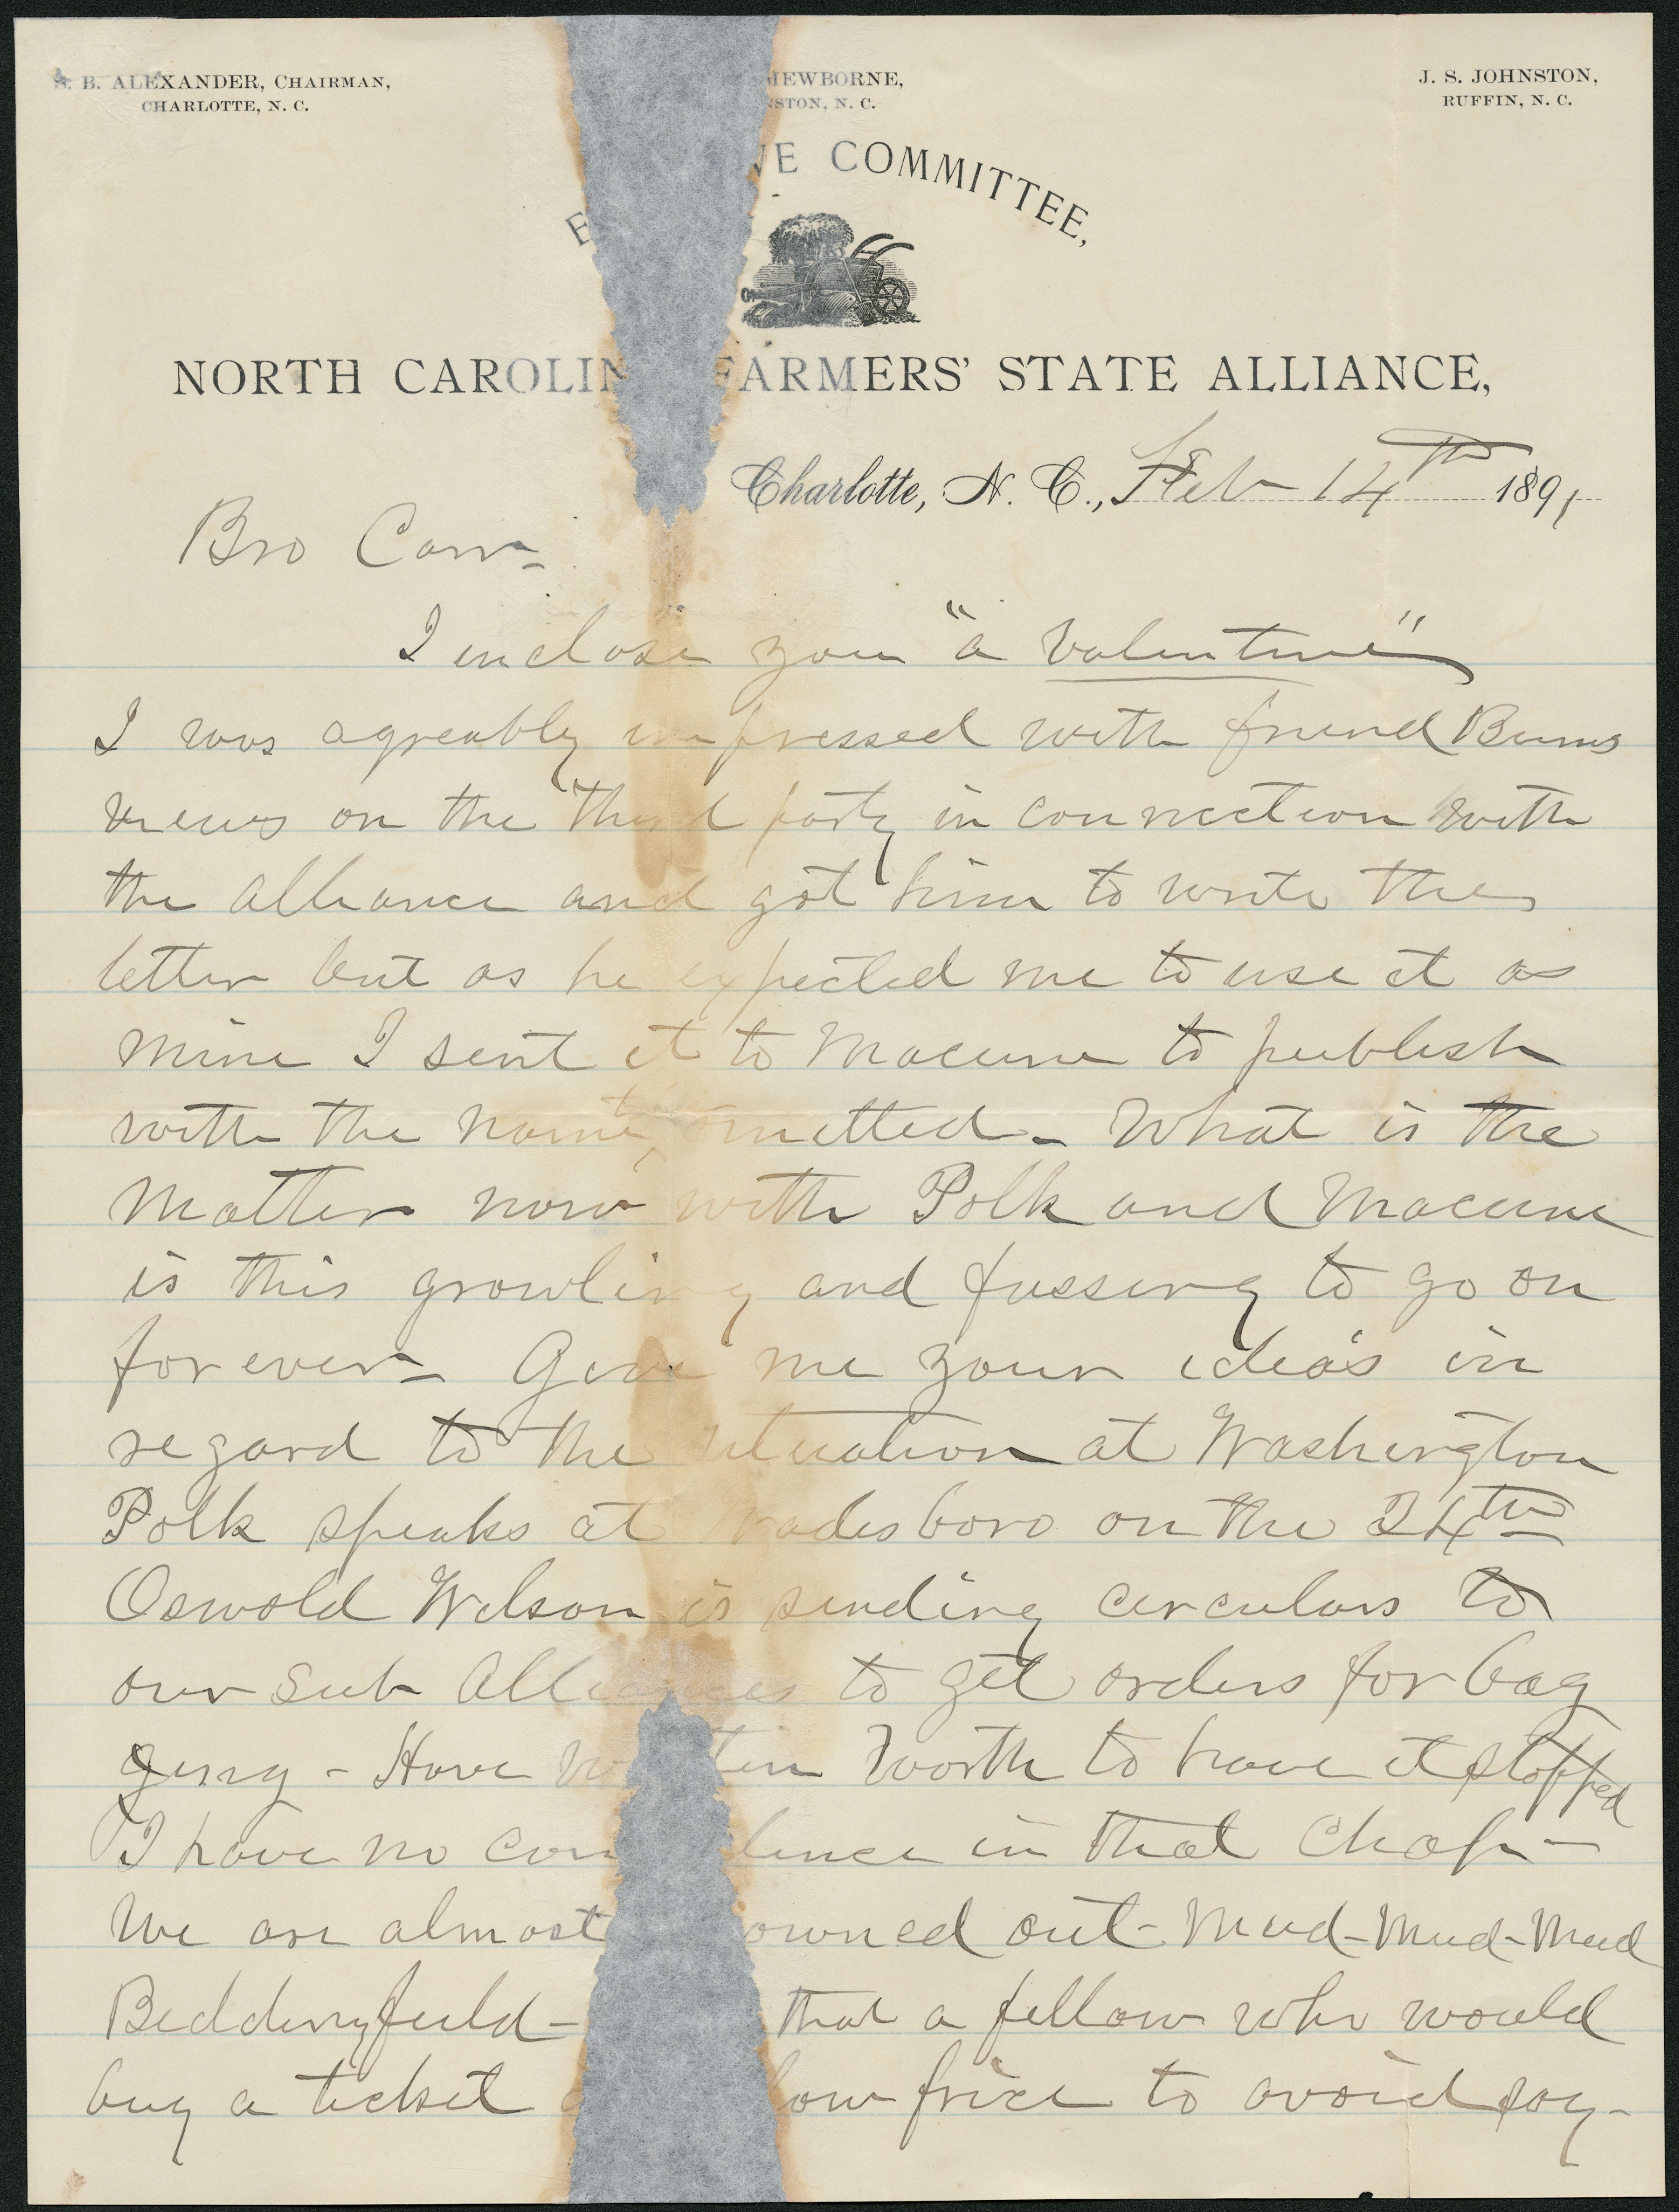 S. B. ALEXANDER, CHAIRMAN,
CHARLOTTE, N. C.
MEWBORNE,
NSTON, N. C.
J. S. JOHNSTON,
RUFFIN, N. C.
E VE COMMITTEE,
NORTH CAROLIN FARMERS' STATE ALLIANCE,
Charlotte, N. C., Feb 14th 1891
Bro Carr-
I inclose you "a Valentine"
I was agreably impressed with friend Burns
views on the third party in connection with
the alliance and got him to write the
letter but as he expected me to use it as
mine I sent it to Macune to publish
with the name omitted - What is the
matter now with Polk and Macune
is this growling and fussing to go on
forever - Give me your ideas in
regard to the situation at Washington
Polk speaks at Wadesboro on the 24th
Oswold Wilson is sending circulars to
our Sub Alliances to get orders for bag
ging - Have w ten Worth to have it stopped
I have no con dence in that Chap -
We are almost owned out - Mud - Mud - Mud
Beddingfield - that a fellow who would
buy a ticket a low price to avoid pay-